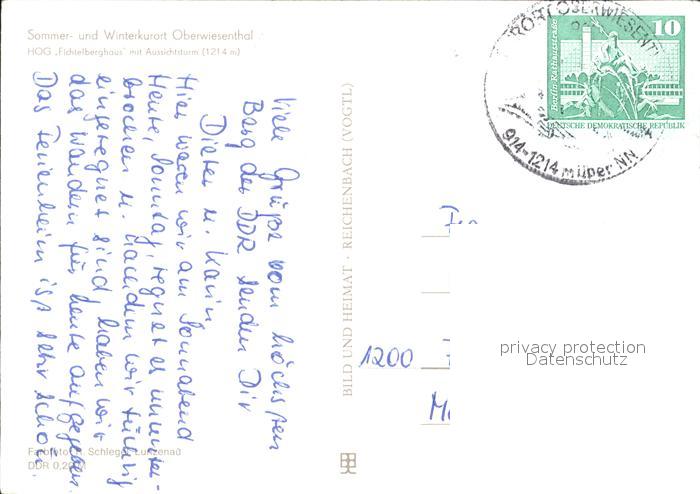 Sommer- und Winterkurort Oberwiesenthal
HOG „Fichtelberghaus" mit Aussichtsturm (1214 m)
Viele Grüße vom höchsten
Berg der DDR senden Dir
Dieter u. Karin
Hier waren wir am Sonnabend
Heute, Sonntag, regnet es ununter-
brochen u. nachdem wir tüchtig
eingeregnet sind, haben wir
das Wandern für heute aufgegeben.
Das Ferienheim ist sehr schön.
Farbfoto: R. Schlegel, Lunzenau
DDR 0,20
BILD UND HEIMAT · REICHENBACH (VOGTL)
KURORT OBERWIESENT
914-1214 m über NN
10
Berlin-Rathausstraße
DEUTSCHE DEMOKRATISCHE REPUBLIK
1200
privacy protection
Datenschutz